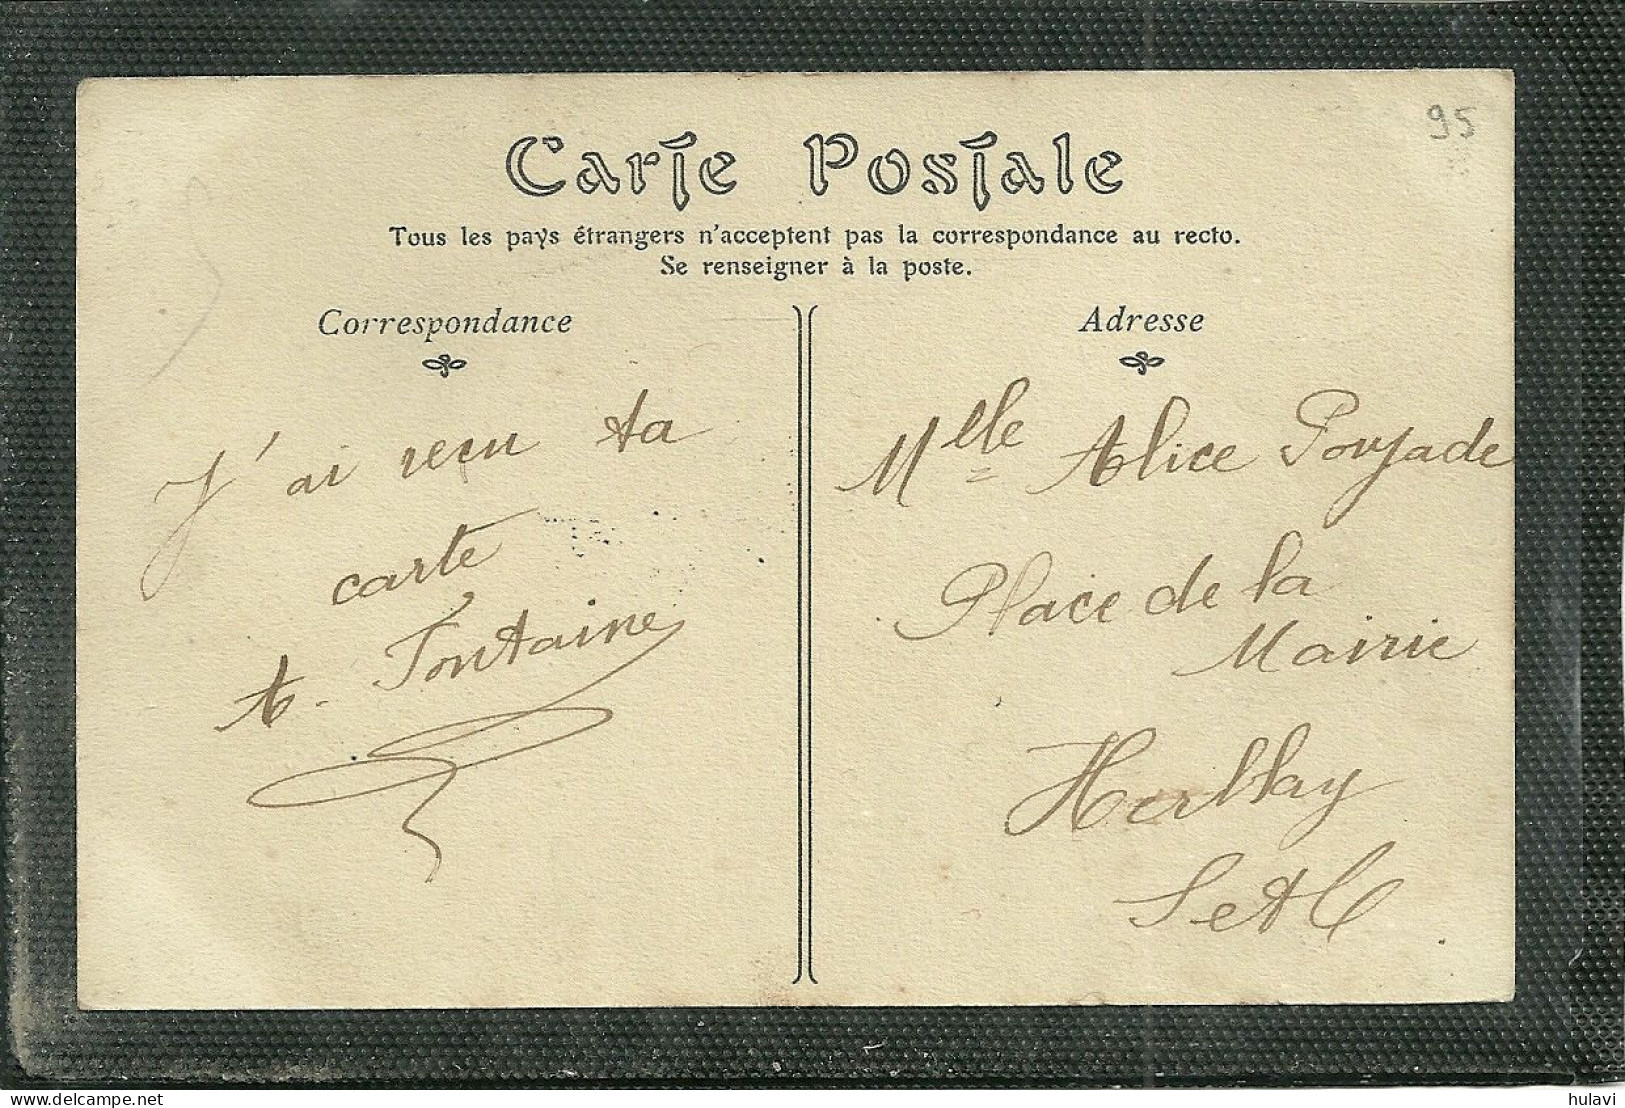 95
Carte Postale
Tous les pays étrangers n'acceptent pas la correspondance au recto.
Se renseigner à la poste.
Correspondance
J'ai recu ta
carte
A. Fontaine
Adresse
Mlle Alice Poujade
Place de la
Mairie
Herblay
S et O
hulavi